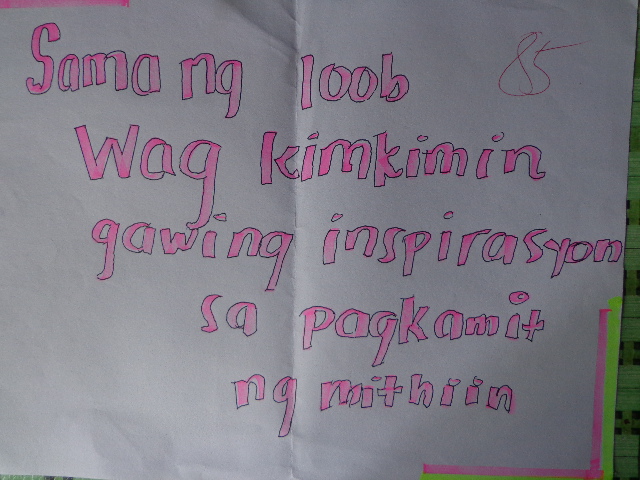 Sama ng loob
85
Wag kimkimin
gawing inspirasyon
sa pagkamit
ng mithiin